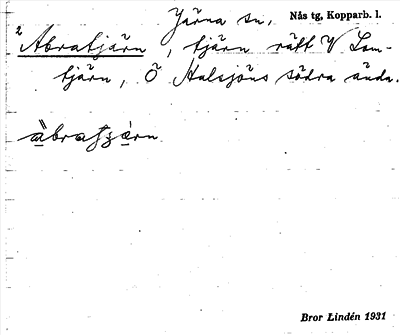 Järna sn, Nås tg, Kopparb. l.
2 Abratjärn, tjärn rätt V Lom-
tjärn, Ö Halsjöns södra ända.
Bror Lindén 1931